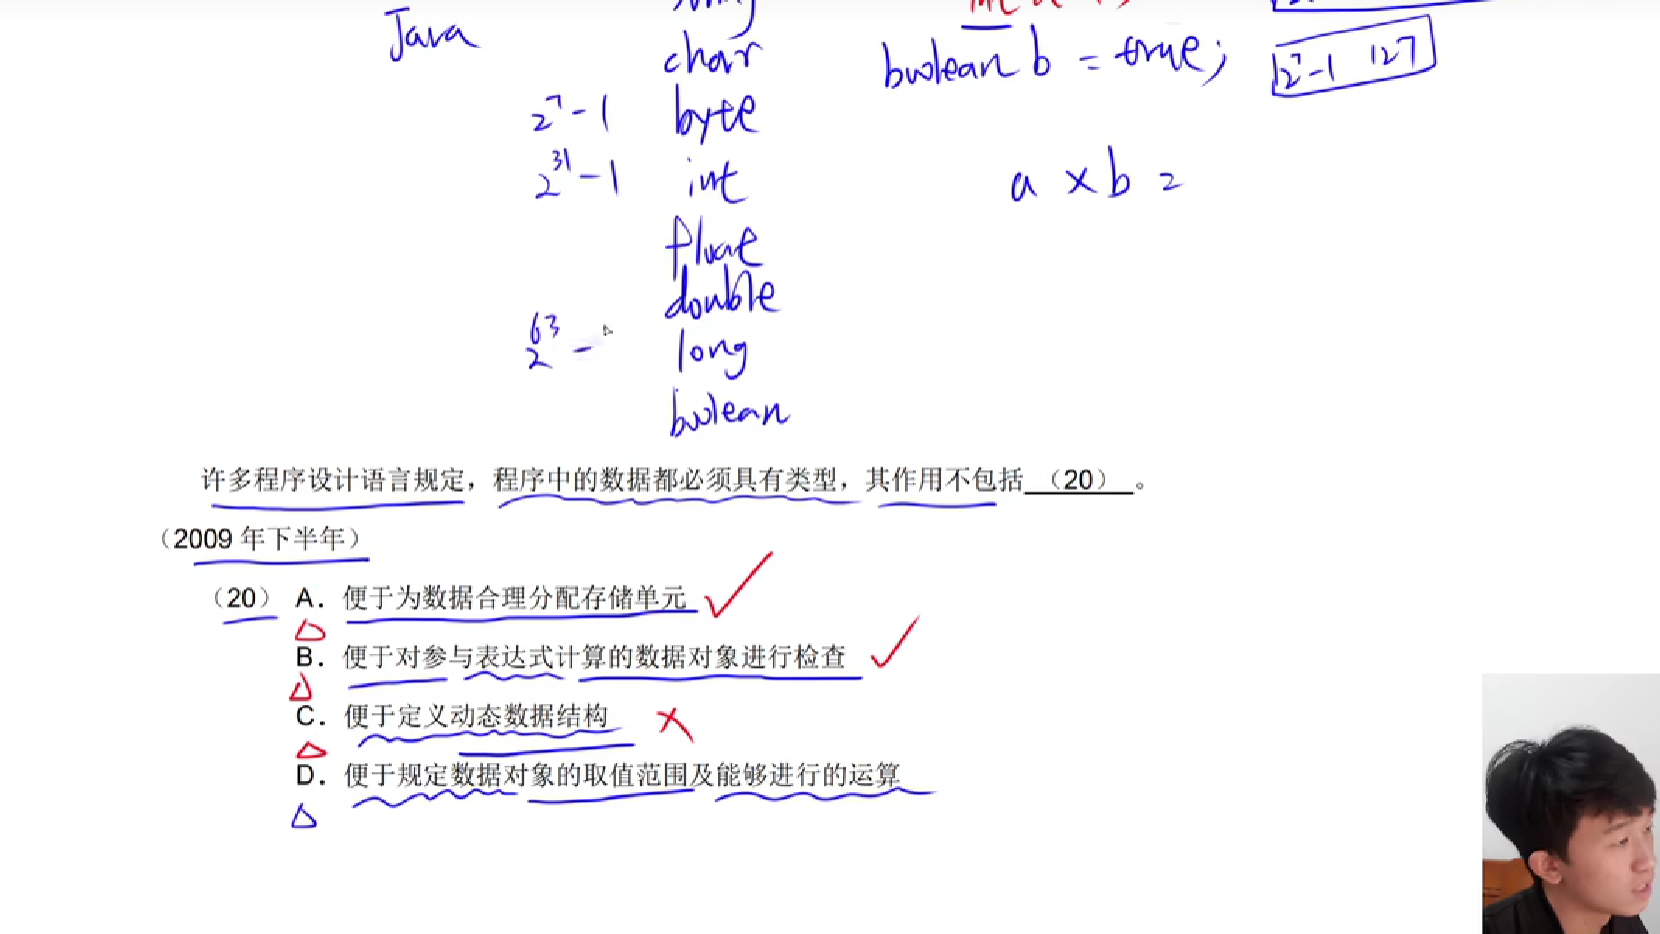 Java
char
boolean b = true;
2⁷-1 127
2⁷-1 byte
2³¹-1 int
a × b =
float
double
2⁶³- long
boolean
许多程序设计语言规定，程序中的数据都必须具有类型，其作用不包括 （20） 。
（2009 年下半年）
（20） A．便于为数据合理分配存储单元
B．便于对参与表达式计算的数据对象进行检查
C．便于定义动态数据结构
D．便于规定数据对象的取值范围及能够进行的运算